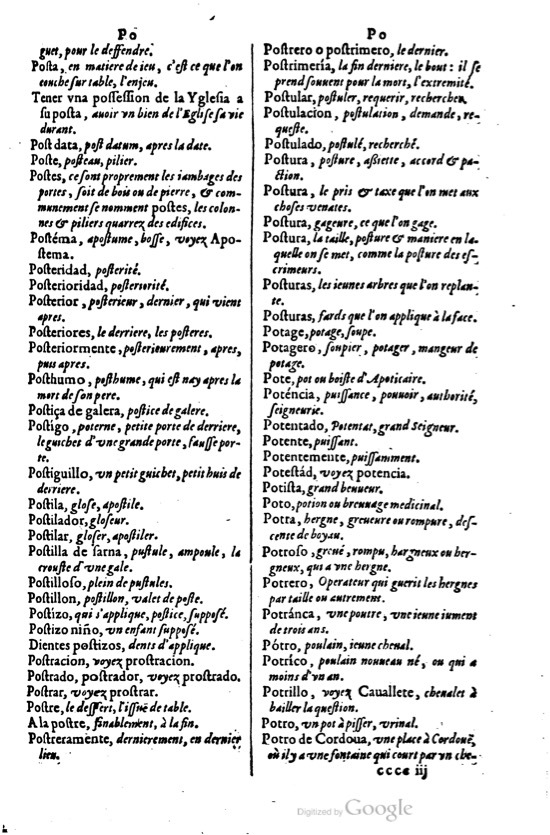 Po
guet, pour le deffendre.
Posta, en matiere de ieu, c'est ce que l'on
couche sur table, l'enjeu.
Tener vna possession de la Yglesia a
su posta, auoir vn bien de l'Eglise sa vie
durant.
Post data, post datum, apres la date.
Poste, posteau, pilier.
Postes, ce sont proprement les iambages des
portes, soit de bois ou de pierre, & com-
munement se nomment postes, les colon-
nes & piliers quarrez des edifices.
Postéma, apostume, bosse, voyez Apo-
stema.
Posteridad, posterité.
Posterioridad, posteriorité.
Posterior, posterieur, dernier, qui vient
apres.
Posteriores, le derriere, les posteres.
Posteriormente, posterieurement, apres,
puis apres.
Posthumo, posthume, qui est nay apres la
mort de son pere.
Postiça de galera, postice de galere.
Postigo, poterne, petite porte de derriere,
le guichet d'vne grande porte, fausse por-
te.
Postiguillo, vn petit guichet, petit huis de
derriere.
Postila, glose, apostile.
Postilador, gloseur.
Postilar, gloser, apostiler.
Postilla de sarna, pustule, ampoule, la
crouste d'vne gale.
Postilloso, plein de pustules.
Postillon, postillon, valet de poste.
Postizo, qui s'applique, postice, supposé.
Postizo niño, vn enfant supposé.
Dientes postizos, dents d'applique.
Postracion, voyez prostracion.
Postrado, postrador, voyez prostrado.
Postrar, voyez prostrar.
Postre, le dessert, l'issuë de table.
A la postre, finablement, à la fin.
Postreramente, dernierement, en dernier
lieu.
Po
Postrero o postrimero, le dernier.
Postrimería, la fin derniere, le bout: il se
prend souuent pour la mort, l'extremité.
Postular, postuler, requerir, rechercher.
Postulacion, postulation, demande, re-
queste.
Postulado, postulé, recherché.
Postura, posture, assiette, accord & pa-
ction.
Postura, le pris & taxe que l'on met aux
choses venates.
Postura, gageure, ce que l'on gage.
Postura, la taille, posture & maniere en la-
quelle on se met, comme la posture des es-
crimeurs.
Posturas, les ieunes arbres que l'on replan-
te.
Posturas, fards que l'on applique à la face.
Potage, potage, soupe.
Potagero, soupier, potager, mangeur de
potage.
Pote, pot ou boiste d'Apoticaire.
Poténcia, puissance, pouuoir, authorité,
seigneurie.
Potentado, Potentat, grand Seigneur.
Potente, puissant.
Potentemente, puissamment.
Potestád, voyez potencia.
Potista, grand beuueur.
Poto, potion ou breuuage medicinal.
Potra, hergne, greueure ou rompure, des-
cente de boyau.
Potroso, greué, rompu, hargneux ou her-
gneux, qui a vne hergne.
Potrero, Operateur qui guerit les hergnes
par taille ou autrement.
Potránca, vne poutre, vne ieune iument
de trois ans.
Pótro, poulain, ieune cheual.
Potríco, poulain nouueau né, ou qui a
moins d'vn an.
Potrillo, voyez Cauallete, cheualet à
bailler la question.
Potro, vn pot à pisser, vrinal.
Potro de Cordoua, vne place à Cordouë,
où il y a vne fontaine qui court par vn che-
cccc iij
Digitized by Google